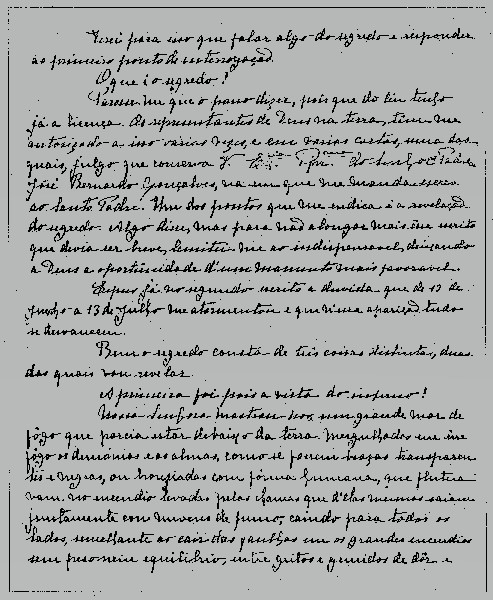 Terei para isso que falar algo do segredo e responder
ao primeiro ponto de interrogação.
O que é o segredo?
Parece-me que o posso dizer, pois que do Céu tenho
já a licença. Os representantes de Deus na terra, têm-me
autorizado a isso várias vezes, e em várias cartas, uma das
quais, julgo que conserva V. do Senhor Padre
José Bernardo Gonçalves, na em que me manda escrever
ao Santo Padre. Um dos pontos que me indica é a revelação
do segredo. Algo disse, mas para não alongar mais esse escrito
que devia ser breve, limitei-me ao indispensável, deixando
a Deus a oportunidade d'um momento mais favorável.
Expus já no segundo escrito a dúvida que de 13 de
Junho a 13 de Julho me atormentou e que n'essa aparição tudo
se desvaneceu.
Bem o segredo consta de três coisas distintas, duas
das quais vou revelar.
A primeira foi pois a vista do inferno!
Nossa Senhora mostrou-nos um grande mar de
fôgo que parecia estar debaixo da terra. Mergulhados em êsse
fôgo os demónios e as almas, como se fossem brasas transparen
tes e negras, ou bronziadas com fórma humana, que flutua
vam no incendio levadas pelas chamas que d'elas mesmas saiam
juntamente com nuvens de fumo, caindo para todos os
lados, semelhante ao cair das faulhas em os grandes incendios
sem peso nem equilíbrio, entre gritos e gemidos de dôr e